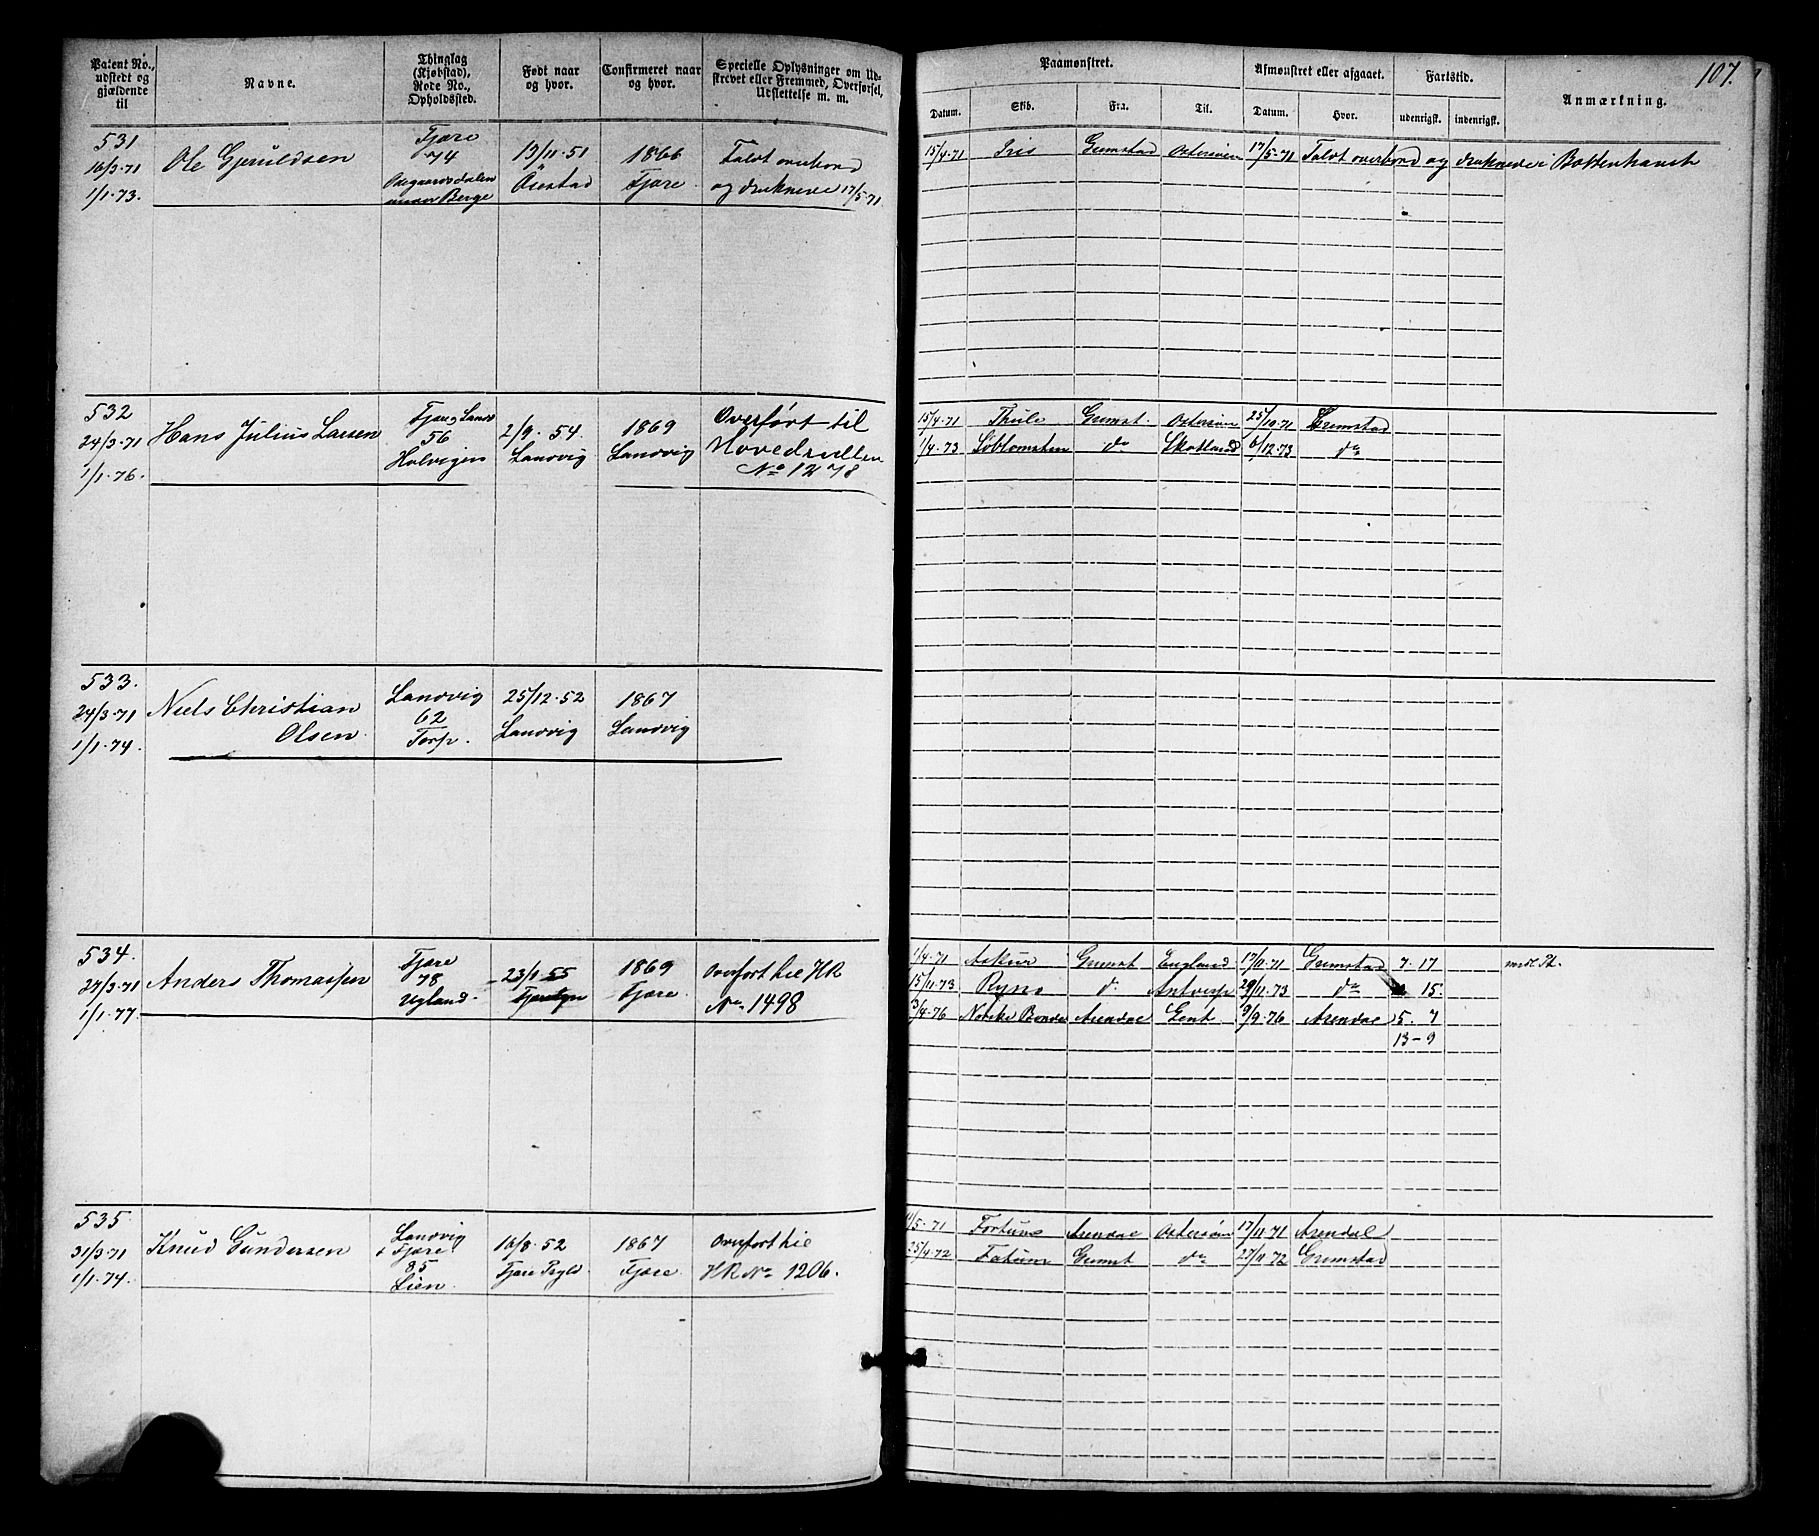 107.
Patent No., udstedt og gjældende til
Navne.
Thinglag (Kjøbstad), Rode No., Opholdssted.
Født naar og hvor.
Confirmeret naar og hvor.
Specielle Oplysninger om Udskrevet eller Fremmed, Overførsel, Udslettelse m. m.
Paamønstret.
Datum.
Skib.
Fra.
Til.
Afmønstret eller afgaaet.
Datum.
Hvor.
Fartstid.
udenrigsk.
indenrigsk.
Anmærkning.
531
16/3-71
1/1-73.
Ole Gjeruldsen
Fjære
74
Berge
13/11-51
1866
Fjære
Faldt overbord
og druknede 17/5-71
15/4-71 Iris Grimstad Østersøen 17/5-71 Faldt overbord og druknede i
532
24/3-71
1/1-76.
Hans Julius Larsen
56
2/9-54.
Landvig
1869
Landvig
Overført til
Hovedrullen
No 1278
15/4-71 Thule Grimst. Østersøen 25/10-71 Grimstad
1/4-73 do Skotland 6/12-73 do
533.
24/3-71
1/1-74.
Niels Christian
Olsen.
Landvig
62
Torp.
25/12-52
Landvig
1867
Landvig
534.
27/3-71
1/1-77.
Anders Thomassen
Fjære
78
Ugland.
23/1-55
1869
Fjære.
Overført til HR
No 1498
1/4-71 Grimst England 17/11-71 Grimstad 7-17
15/11-73 do Antverp 29/11-73 do 15.
3/4-76 Norske Bonde Arendal Gent 9/9-76 Arendal 5. 7
13-9
535
31/3-71
1/1-74.
Knud Gundersen
Landvig
+ Fjære
85
Lien.
16/8-52
1867
Fjære.
Overført til
HR No 1206.
1/5-71 Fortuna Arendal Østersøen 17/11-71 Arendal
25/4-72 Fatum Grimst do 27/11-72 Grimstad